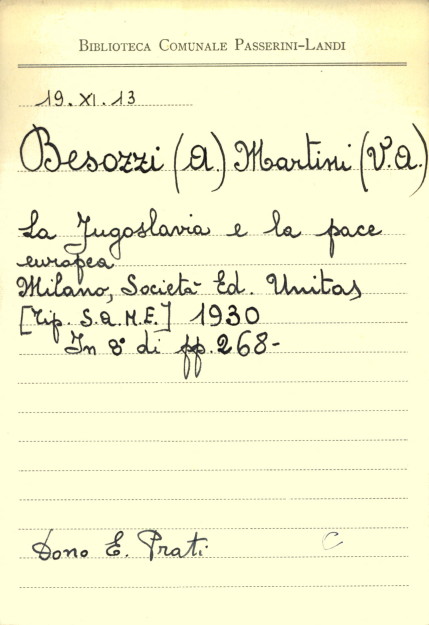 BIBLIOTECA COMUNALE PASSERINI-LANDI
19. XI. 13
Besozzi (A.) Martini (V.A.)
La Jugoslavia e la pace
europea
Milano, Società Ed. Unitas
[Tip. S.A.M.E.] 1930
In 8° di pp. 268-
Dono E. Prati
C